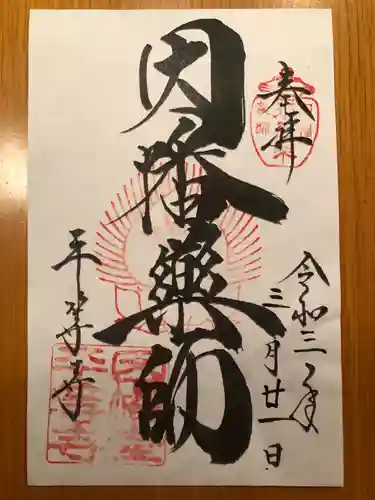 奉拝
令和三年
三月廿一日
因幡薬師
平等寺